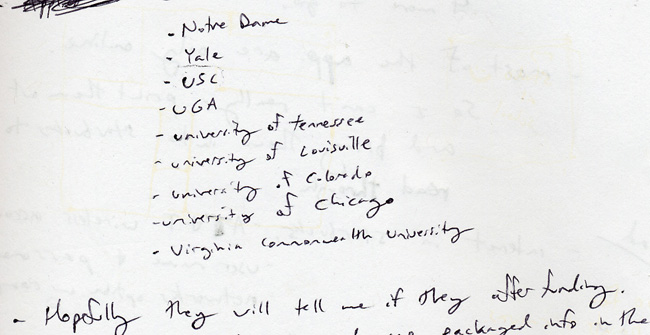 - Notre Dame
- Yale
- USC
- UGA
- university of tennessee
- university of Louisville
- university of Colorado
- university of Chicago
- Virginia commonwealth university
- Hopefully they will tell me if they offer funding.
packaged info in the